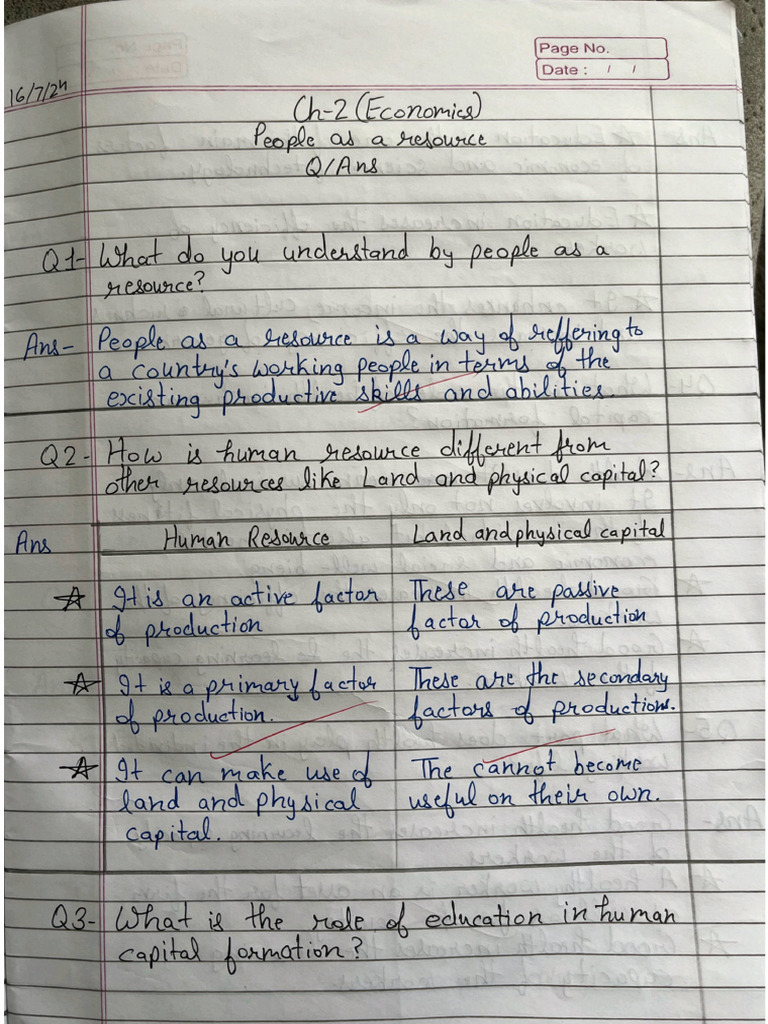 Page No.
Date : / /
16/7/24
Ch-2 (Economics)
People as a resource
Q/Ans
Q1- What do you understand by people as a
resource?
Ans- People as a resource is a way of reffering to
a country's working people in terms of the
existing productive skills and abilities.
Q2- How is human resource different from
other resources like Land and physical capital?
Ans Human Resource Land and physical capital
☆ It is an active factor These are passive
of production factor of production
☆ It is a primary factor These are the secondary
of production. factors of productions.
☆ It can make use of The cannot become
land and physical useful on their own.
capital.
Q3- What is the role of education in human
capital formation?